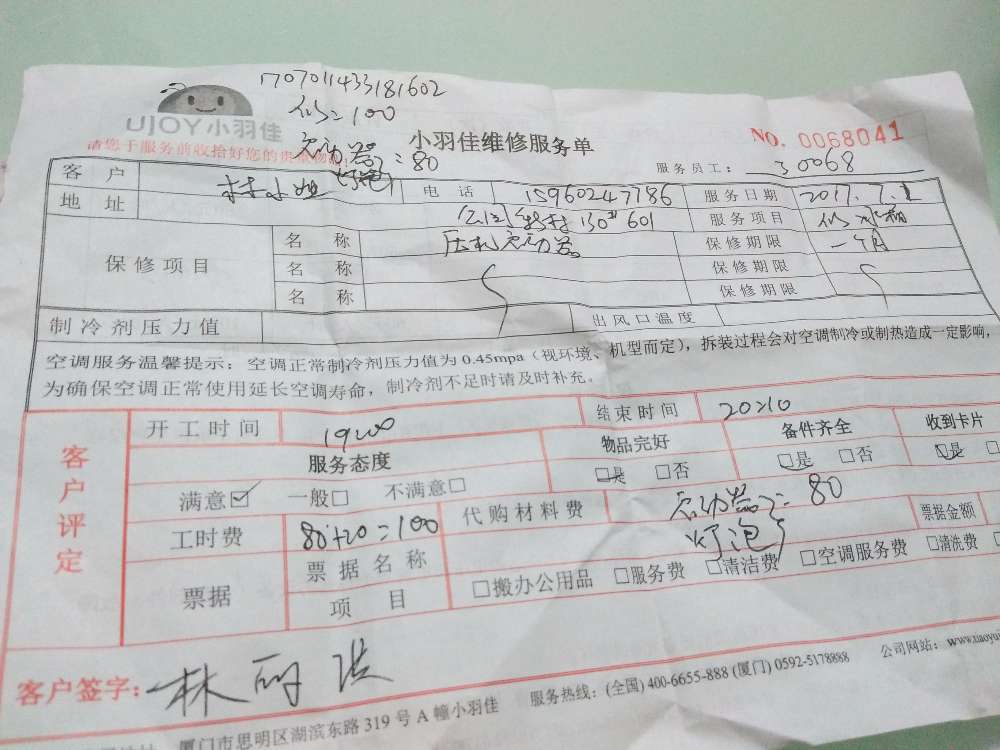 170701143318160​2
UJOY小羽佳
=100
请您于服务前收拾好您的贵重物
启动器
灯泡
=80
小羽佳维修服务单
NO. 0068041
服务员工: 30068
客户 林小姐 电话 15960247786 服务日期 2017.7.1
地址 130# 601 服务项目 冰箱
保修项目
名称 压机启动器 保修期限 一个月
名称 保修期限
名称 保修期限
制冷剂压力值 出风口温度
空调服务温馨提示: 空调正常制冷剂压力值为 0.45mpa (视环境、机型而定), 拆装过程会对空调制冷或制热造成一定影响,
为确保空调正常使用延长空调寿命, 制冷剂不足时请及时补充。
客户评定
开工时间 1900 结束时间 20:10
服务态度 物品完好 备件齐全 收到卡片
满意☑ 一般□ 不满意□ □是 □否 □是 □否 □是
工时费 80+20=100 代购材料费 启动器 灯泡 =80 票据金额
票据 票据名称
项目 □搬办公用品 □服务费 □清洁费 □空调服务费 □清洗费
客户签字:
服务热线: (全国) 400-6655-888 (厦门) 0592-5178888 公司网站:
厦门市思明区湖滨东路 319 号 A 幢小羽佳